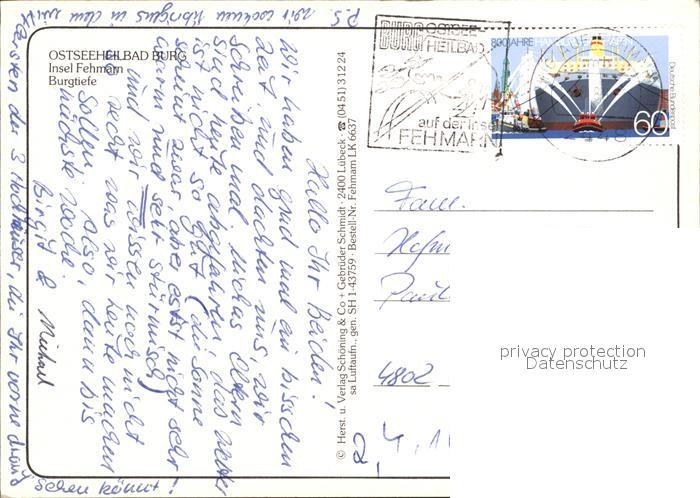 OSTSEEHEILBAD BURG
Insel Fehmarn
Burgtiefe
Hallo Ihr Beiden!
Wir haben grad mal ein bisschen
Zeit und dachten uns, wir
schreiben mal. Michas Eltern
sind heute abgefahren, das Wetter
ist nicht so gut (die Sonne
scheint zwar, aber es ist nicht sehr
warm und sehr stürmisch)
und wir wissen noch nicht
recht was wir heute machen
sollen. Also, dann bis
nächste Woche.
Birgit & Michael
P.S. Wir wohnen übrigens in dem mittl
ersten der 3 Hochhäuser, die Ihr vorne drauf
sehen könnt!
© Herst. u. Verlag Schöning & Co + Gebrüder Schmidt · 2400 Lübeck · ☎ (0451) 31224
sa Luftaufn., gen. SH 1-43759 · Bestell-Nr. Fehmarn LK 6637
BURG OSTSEE-
HEILBAD
auf der Insel
FEHMARN
800 JAHRE
Deutsche Bundespost
60
Fam.
4802
privacy protection
Datenschutz